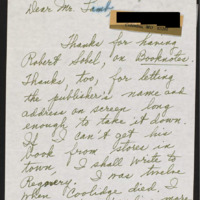 Dear Mr. Lamb,
Thanks for having
Robert Sobel, on Booknotes.
Thanks, too, for letting
the publisher's name and
address on screen long
enough to take it down.
If I can't get his
book from stores in
town, I shall write to
Regnery. I was twelve
when Coolidge died. I
more